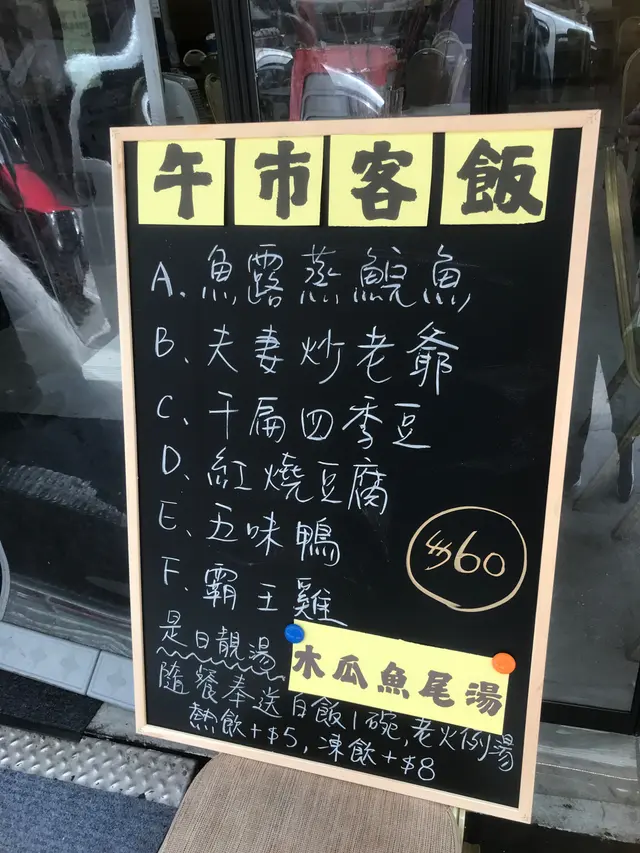 午市客飯
A. 魚露蒸鯇魚
B. 夫妻炒老爺
C. 干扁四季豆
D. 紅燒豆腐
E. 五味鴨
F. 霸王雞
$60
是日靚湯
木瓜魚尾湯
隨餐奉送白飯1碗,老火例湯
熱飲+$5, 凍飲+$8